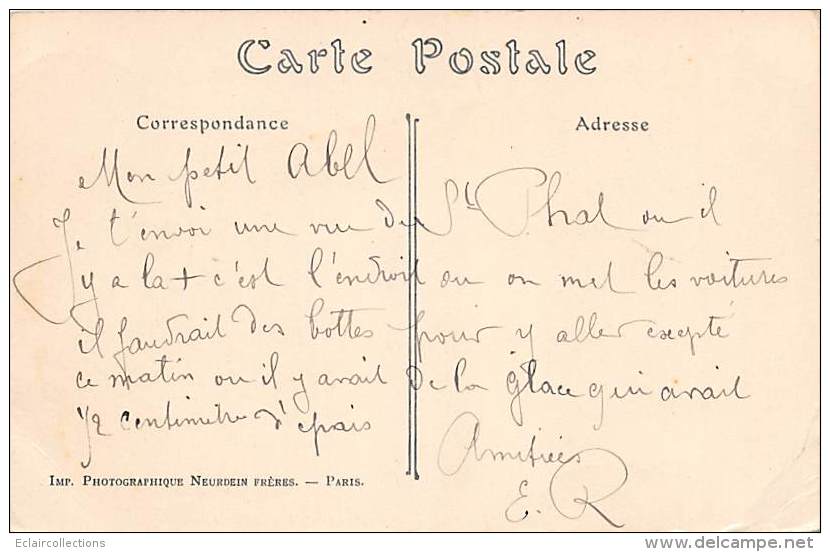 Carte Postale
Correspondance
Adresse
Mon petit Abel
Je t'envoi une vue de St. Phal ou il
y a la + c'est l'endroit ou on met les voitures
il faudrait des bottes pour y aller excepté
ce matin ou il y avait de la glace qui avait
1/2 centimètre d'epais
Amitiées
E. R
IMP. PHOTOGRAPHIQUE NEURDEIN FRÈRES. — PARIS.
Eclaircollections
delcampe.net